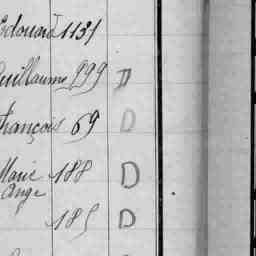 Edouard 1131
Guillaume 999 D
François 69 D
Marie 188 D
Ange
185 D